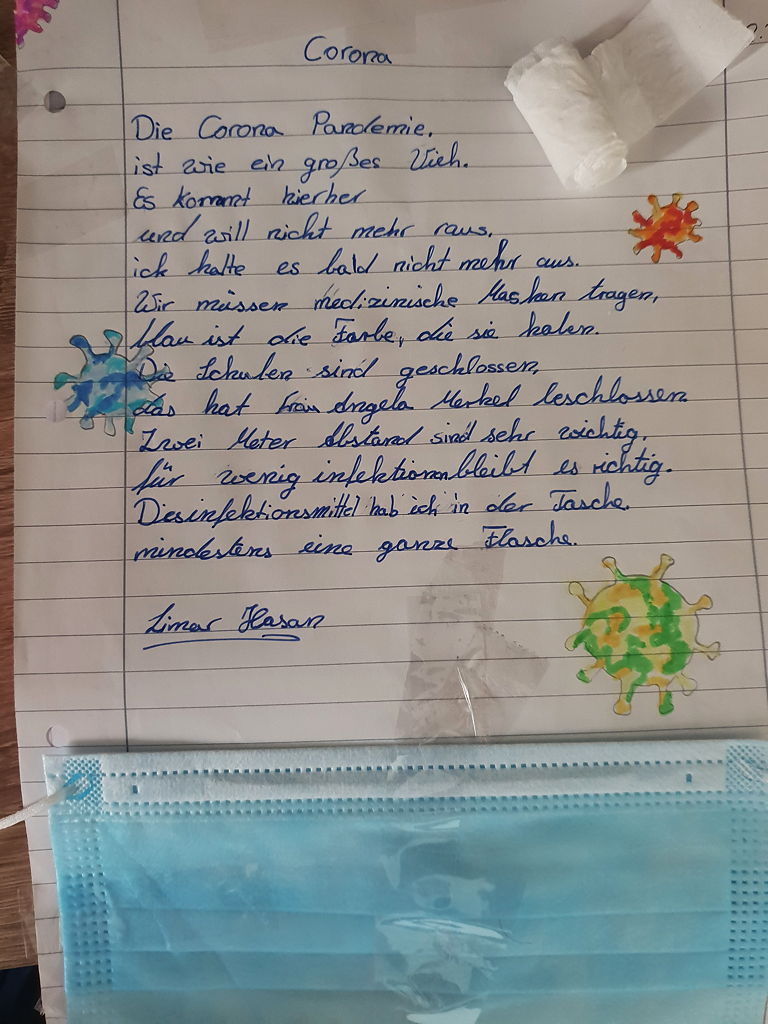 Corona
Die Corona Pandemie,
ist wie ein großes Vieh.
Es kommt hierher
und will nicht mehr raus,
ich halte es bald nicht mehr aus.
Wir müssen medizinische Masken tragen,
blau ist die Farbe, die sie haben.
Die Schulen sind geschlossen,
das hat Frau Angela Merkel beschlossen.
Zwei Meter Abstand sind sehr wichtig,
für wenig infektionen bleibt es richtig.
Desinfektionsmittel hab ich in der Tasche.
mindestens eine ganze Flasche.
Limar Hasan